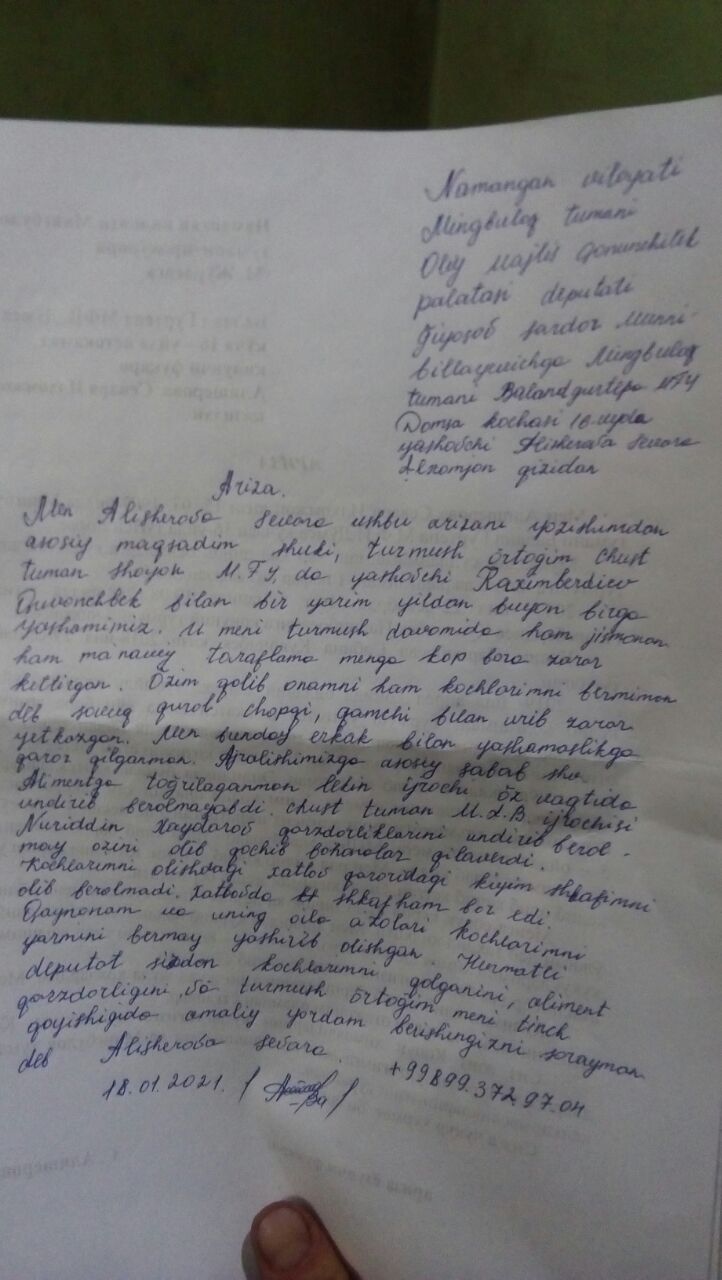 Namangan viloyati
Mingbuloq tumani
Oliy Majlis qonunchilik
palatasi deputati
Giyosov Sardor
Mingbuloq
tumani Balandgurtepa MFY
kochasi 16-uyda
yashovchi Alisherova Sevara
qizidan
Ariza.
Men Alisherova Sevara ushbu arizani yozishimdan
asosiy maqsadim shuki, turmush örtogim Chust
tuman Shoyon M.F.Y. da yashovchi Raximberdiev
Quvonchbek bilan bir yarim yildan buyon birga
yashamimiz. U meni turmush davomida ham jismonan
ham ma'naviy taraflama menga kop bora zarar
keltirgan. Özim qolib onamni ham kochlarimni bermiman
deb sovuq qurol chopqi, qamchi bilan urib zarar
yetkazgan. Men bunday erkak bilan yashamaslikga
qaror qilganman. Ajralishimizga asosiy sabab shu.
Alimentga toğrilaganman lekin ijrochi öz vaqtida
undirib berolmayabdi. Chust tuman M.I.B. ijrochisi
Nuriddin Xaydarov qarzdorliklarini undirib berol-
may ozini olib qochib bohanalar qilaverdi.
Kochlarimni olishdagi xatlov qaroridagi kiyim shkafimni
olib berolmadi. Xatlovda shkaf ham bor edi.
Qaynonam va uning oila a'zolari kochlarimni
yarmini bermay yashirib olishgan. Hurmatli
deputat sizdan kochlarimni qolganini, aliment
qarzdorligini, va turmush örtoğim meni tinch
qoyishigida amaliy yordam berishingizni sorayman
deb Alisherova Sevara.
18.01.2021. +99899.372.97.04